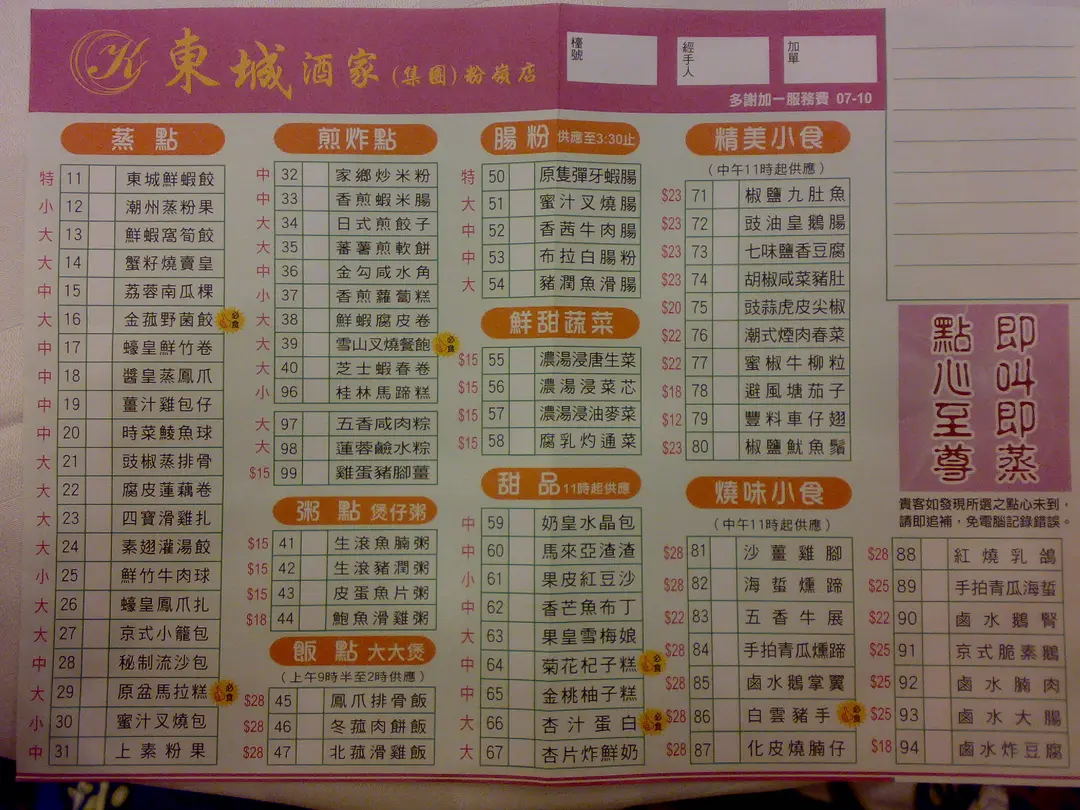 東城酒家(集團)粉嶺店
檯號
經手人
加單
多謝加一服務費 07-10
蒸點
特 11 東城鮮蝦餃
小 12 潮州蒸粉果
大 13 鮮蝦窩筍餃
大 14 蟹籽燒賣皇
中 15 荔蓉南瓜粿
大 16 金菰野菌餃 必食
中 17 蠔皇鮮竹卷
中 18 醬皇蒸鳳爪
中 19 薑汁雞包仔
中 20 時菜鯪魚球
大 21 豉椒蒸排骨
大 22 腐皮蓮藕卷
大 23 四寶滑雞扎
大 24 素翅灌湯餃
小 25 鮮竹牛肉球
大 26 蠔皇鳳爪扎
大 27 京式小籠包
中 28 秘制流沙包
大 29 原盆馬拉糕 必食
小 30 蜜汁叉燒包
中 31 上素粉果
煎炸點
中 32 家鄉炒米粉
中 33 香煎蝦米腸
大 34 日式煎餃子
大 35 蕃薯煎軟餅
中 36 金勾咸水角
小 37 香煎蘿蔔糕
大 38 鮮蝦腐皮卷
大 39 雪山叉燒餐飽 必食
大 40 芝士蝦春卷
小 96 桂林馬蹄糕
大 97 五香咸肉粽
大 98 蓮蓉鹼水粽
$15 99 雞蛋豬腳薑
粥點 煲仔粥
$15 41 生滾魚腩粥
$15 42 生滾豬潤粥
$15 43 皮蛋魚片粥
$18 44 鮑魚滑雞粥
飯點 大大煲
(上午9時半至2時供應)
$28 45 鳳爪排骨飯
$28 46 冬菰肉餅飯
$28 47 北菰滑雞飯
腸粉 供應至3:30止
特 50 原隻彈牙蝦腸
大 51 蜜汁叉燒腸
中 52 香茜牛肉腸
中 53 布拉白腸粉
大 54 豬潤魚滑腸
鮮甜蔬菜
$15 55 濃湯浸唐生菜
$15 56 濃湯浸菜芯
$15 57 濃湯浸油麥菜
$15 58 腐乳灼通菜
甜品 11時起供應
中 59 奶皇水晶包
中 60 馬來亞渣渣
小 61 果皮紅豆沙
中 62 香芒魚布丁
大 63 果皇雪梅娘
中 64 菊花杞子糕 必食
中 65 金桃柚子糕
大 66 杏汁蛋白 必食
大 67 杏片炸鮮奶
精美小食
(中午11時起供應)
$23 71 椒鹽九肚魚
$23 72 豉油皇鵝腸
$23 73 七味鹽香豆腐
$23 74 胡椒咸菜豬肚
$20 75 豉蒜虎皮尖椒
$22 76 潮式煙肉春菜
$22 77 蜜椒牛柳粒
$18 78 避風塘茄子
$12 79 豐料車仔翅
$23 80 椒鹽魷魚鬚
燒味小食
(中午11時起供應)
$28 81 沙薑雞腳
$28 82 海蜇燻蹄
$22 83 五香牛展
$28 84 手拍青瓜燻蹄
$28 85 鹵水鵝掌翼
$28 86 白雲豬手 必食
$28 87 化皮燒腩仔
即叫即蒸
點心至尊
貴客如發現所選之點心未到，
請即追補，免電腦記錄錯誤。
$28 88 紅燒乳鴿
$25 89 手拍青瓜海蜇
$22 90 鹵水鵝腎
$25 91 京式脆素鵝
$25 92 鹵水腩肉
$25 93 鹵水大腸
$18 94 鹵水炸豆腐